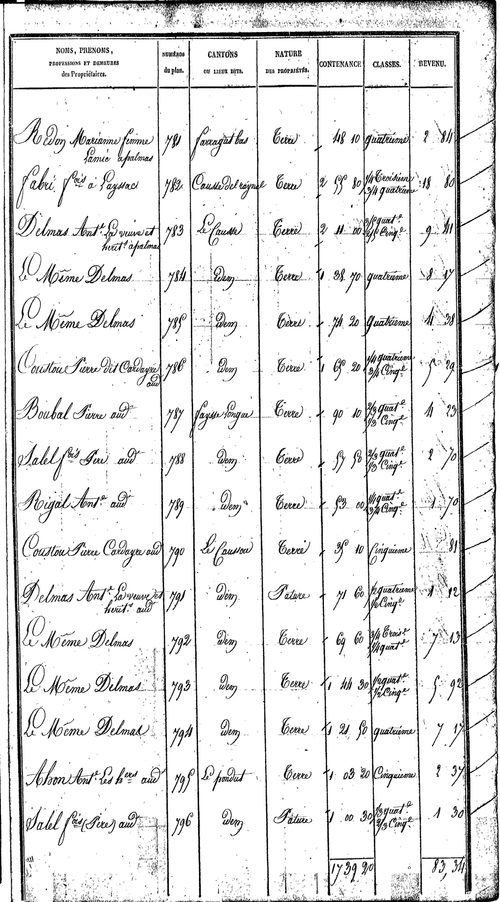 NOMS, PRENOMS, PROFESSIONS ET DEMEURES des Propriétaires. NUMÉROS du plan. CANTONS OU LIEUX DITS. NATURE DES PROPRIÉTÉS. CONTENANCE CLASSES. REVENU.
Redon Marianne femme Lamic a palmas 781 farragut bas Terre 48 10 quatrième 2 84
Fabri fois a Layssac 782 Causse del raynal Terre 2 55 80 1/4 Troisième 3/4 quatrième 18 80
Delmas Ante La veuve et herit. a palmas 783 Le Causse Terre 2 11 00 quat. Cinq. 9 41
Le Même Delmas 784 idem Terre 1 38 70 quatrième 8 17
Le Même Delmas 785 idem Terre 74 20 quatrième 4 38
Coustou Pierre dit Cardayre aud 786 idem Terre 1 65 20 1/4 quatrième 3/4 Cinqe 5 29
Boubal Pierre aud 787 faysse longue Terre 90 10 2/3 quat. 1/3 Cinqe 4 23
Salel fois Pere aud 788 idem Terre 57 50 2/3 quat. 1/3 Cinqe 2 70
Rigal Ante aud 789 idem Terre 53 00 1/4 quat. 3/4 Cinqe 1 70
Coustou Pierre Cardayre aud 790 Le Caussou Terre 35 10 Cinquieme 81
Delmas Ante La veuve et herit. aud 791 idem Pature 71 60 1/2 quatrième 1/2 Cinqe 1 12
Le Même Delmas 792 idem Terre 69 60 3/4 Trois. 1/4 quat. 7 13
Le Même Delmas 793 idem Terre 1 44 30 1/2 quat. 1/2 Cinqe 5 92
Le Même Delmas 794 idem Terre 1 21 50 quatrième 7 17
Ante Les hers aud 795 Le Terre 1 03 20 Cinquieme 2 37
Salel fois (Pere) aud 796 idem Pature 1 00 30 1/3 quat. 2/3 Cinqe 1 30
17 39 20 83,34